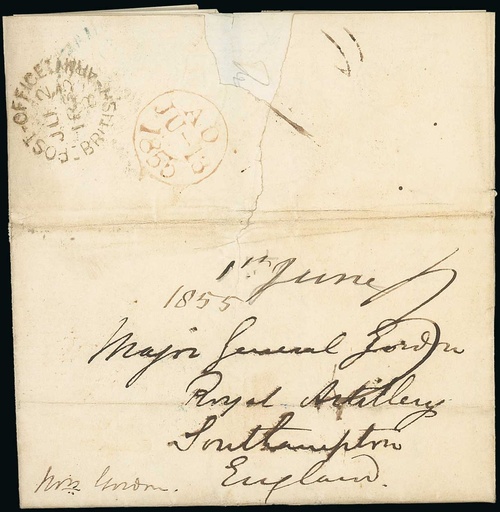 POST-OFFICE BRITISH-ARMY
JU 2
A O
JU-18
1855
1st June
1855
Major General Gordon
Royal Artillery
Southampton
England.
Gordon.